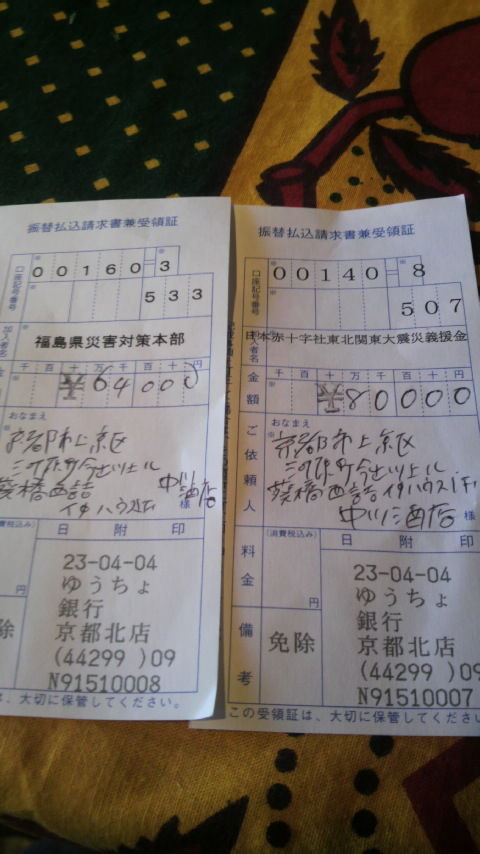 振替払込請求書兼受領証
口座記号番号
00160-3
533
加入者名
福島県災害対策本部
千百十万千百十円
64000
おなまえ
京都市上京区
三の
葵橋西詰
中川酒店
様
(消費税込み)
日附印
円
23-04-04
ゆうちょ
銀行
京都北店
(44299 )09
N91510008
は、大切に保管してください。
振替払込請求書兼受領証
口座記号番号
00140-8
507
加入者名
日本赤十字社東北関東大震災義援金
金額
千百十万千百十円
80000
ご依頼人
おなまえ
京都市上京区
葵橋西詰
中川酒店
様
料金
(消費税込み)
円
日附印
備考
免除
23-04-04
ゆうちょ
銀行
京都北店
(44299 )09
N91510007
この受領証は、大切に保管してください。